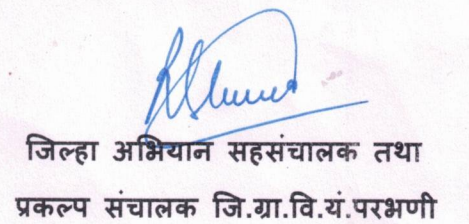 जिल्हा अभियान सहसंचालक तथा
प्रकल्प संचालक जि.ग्रा.वि.यं.परभणी